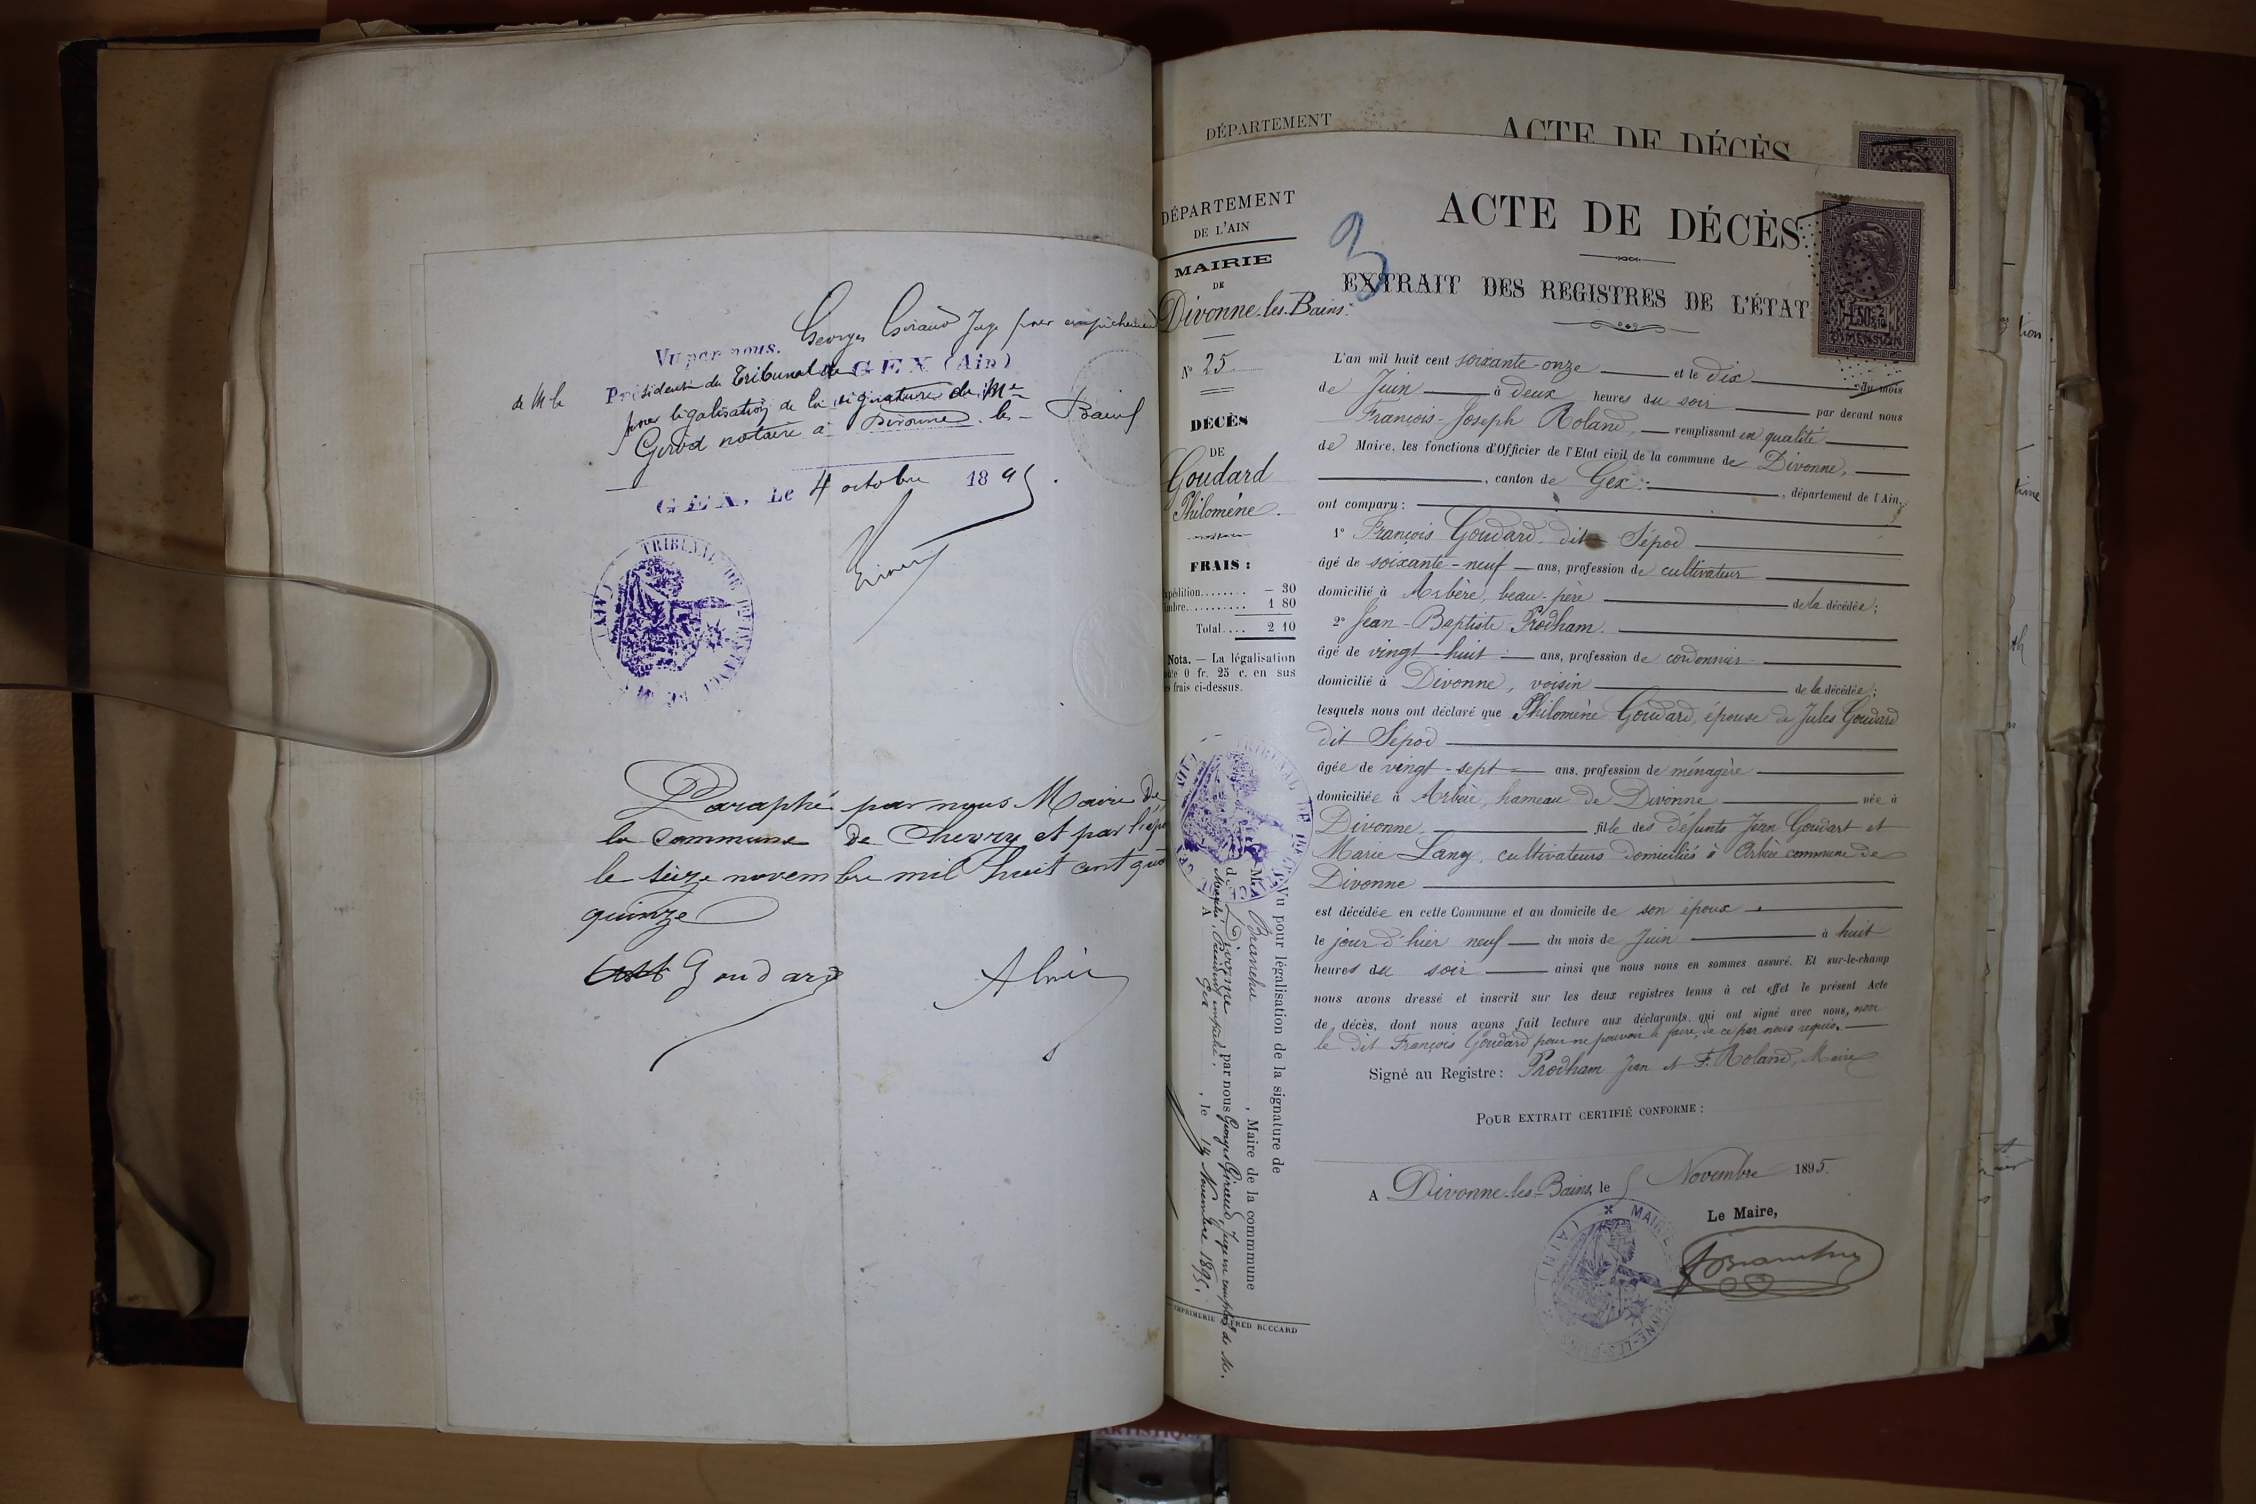 Georges Giraud Juge pour empêchement
Vu par nous.
Président du Tribunal de GEX (Ain)
de M le
pour légalisation de la signature de Me
Girod notaire à Divonne-les-Bains
GEX, Le 4 octobre 1895.
TRIBUNAL DE 1RE INSTANCE
(AIN)
Paraphé par nous Maire de
la Commune de Chevry et par
le seize novembre mil huit cent
quinze
Goudard
DÉPARTEMENT
ACTE DE DÉCÈS
DÉPARTEMENT
DE L'AIN
MAIRIE
DE
Divonne-les-Bains.
N° 25
DÉCÈS
DE
Goudard
Philomène.
FRAIS :
pédition........ - 30
mbre........... 1 80
Total.... 2 10
Nota. — La légalisation
oûte 0 fr. 25 c. en sus
es frais ci-dessus.
Vu pour légalisation de la signature de
M. Branchu , Maire de la commune
de Divonne par nous Georges Giraud, Juge en remplact de M.
Président empêché,
A Gex , le 14 Novembre 1895.
IMPRIMERIE ALFRED BUCCARD
3
ACTE DE DÉCÈS
EXTRAIT DES REGISTRES DE L'ÉTAT
DIMENSION
L'an mil huit cent soixante-onze et le dix du mois
de Juin à deux heures du soir par devant nous
François-Joseph Roland, remplissant en qualité
de Maire, les fonctions d'Officier de l'Etat civil de la commune de Divonne,
, canton de Gex , département de l'Ain,
ont comparu :
1° François Goudard dit Sépod
âgé de soixante-neuf ans, profession de cultivateur
domicilié à Arbère, beau-père de la décédée;
2° Jean-Baptiste Prodham.
âgé de vingt-huit ans, profession de cordonnier
domicilié à Divonne, voisin de la décédée;
lesquels nous ont déclaré que Philomène Goudard, épouse de Jules Goudard
dit Sépod
âgée de vingt-sept ans, profession de ménagère
domiciliée à Arbère, hameau de Divonne née à
Divonne, fille des défunts Jean Goudart et
Marie Lany, cultivateurs domiciliés à Arbère commune de
Divonne
est décédée en cette Commune et au domicile de son époux
le jour d'hier neuf du mois de Juin à huit
heures du soir ainsi que nous nous en sommes assuré. Et sur-le-champ
nous avons dressé et inscrit sur les deux registres tenus à cet effet le présent Acte
de décès, dont nous avons fait lecture aux déclarants, qui ont signé avec nous, non
le dit François Goudard pour ne pouvoir le faire, de ce par nous requis.
Signé au Registre : Prodham Jean et F. Roland, Maire
POUR EXTRAIT CERTIFIÉ CONFORME :
A Divonne-les-Bains, le 5 Novembre 1895.
Le Maire,